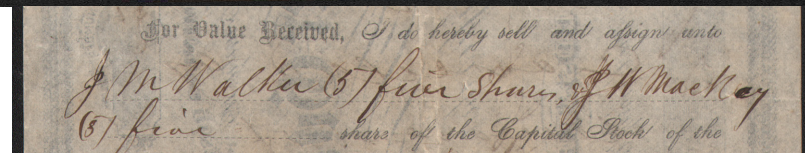 For Value Received, I do hereby sell and assign unto
J M Walker (5) five Shares, & J W Mackey
(5) five share of the Capital Stock of the